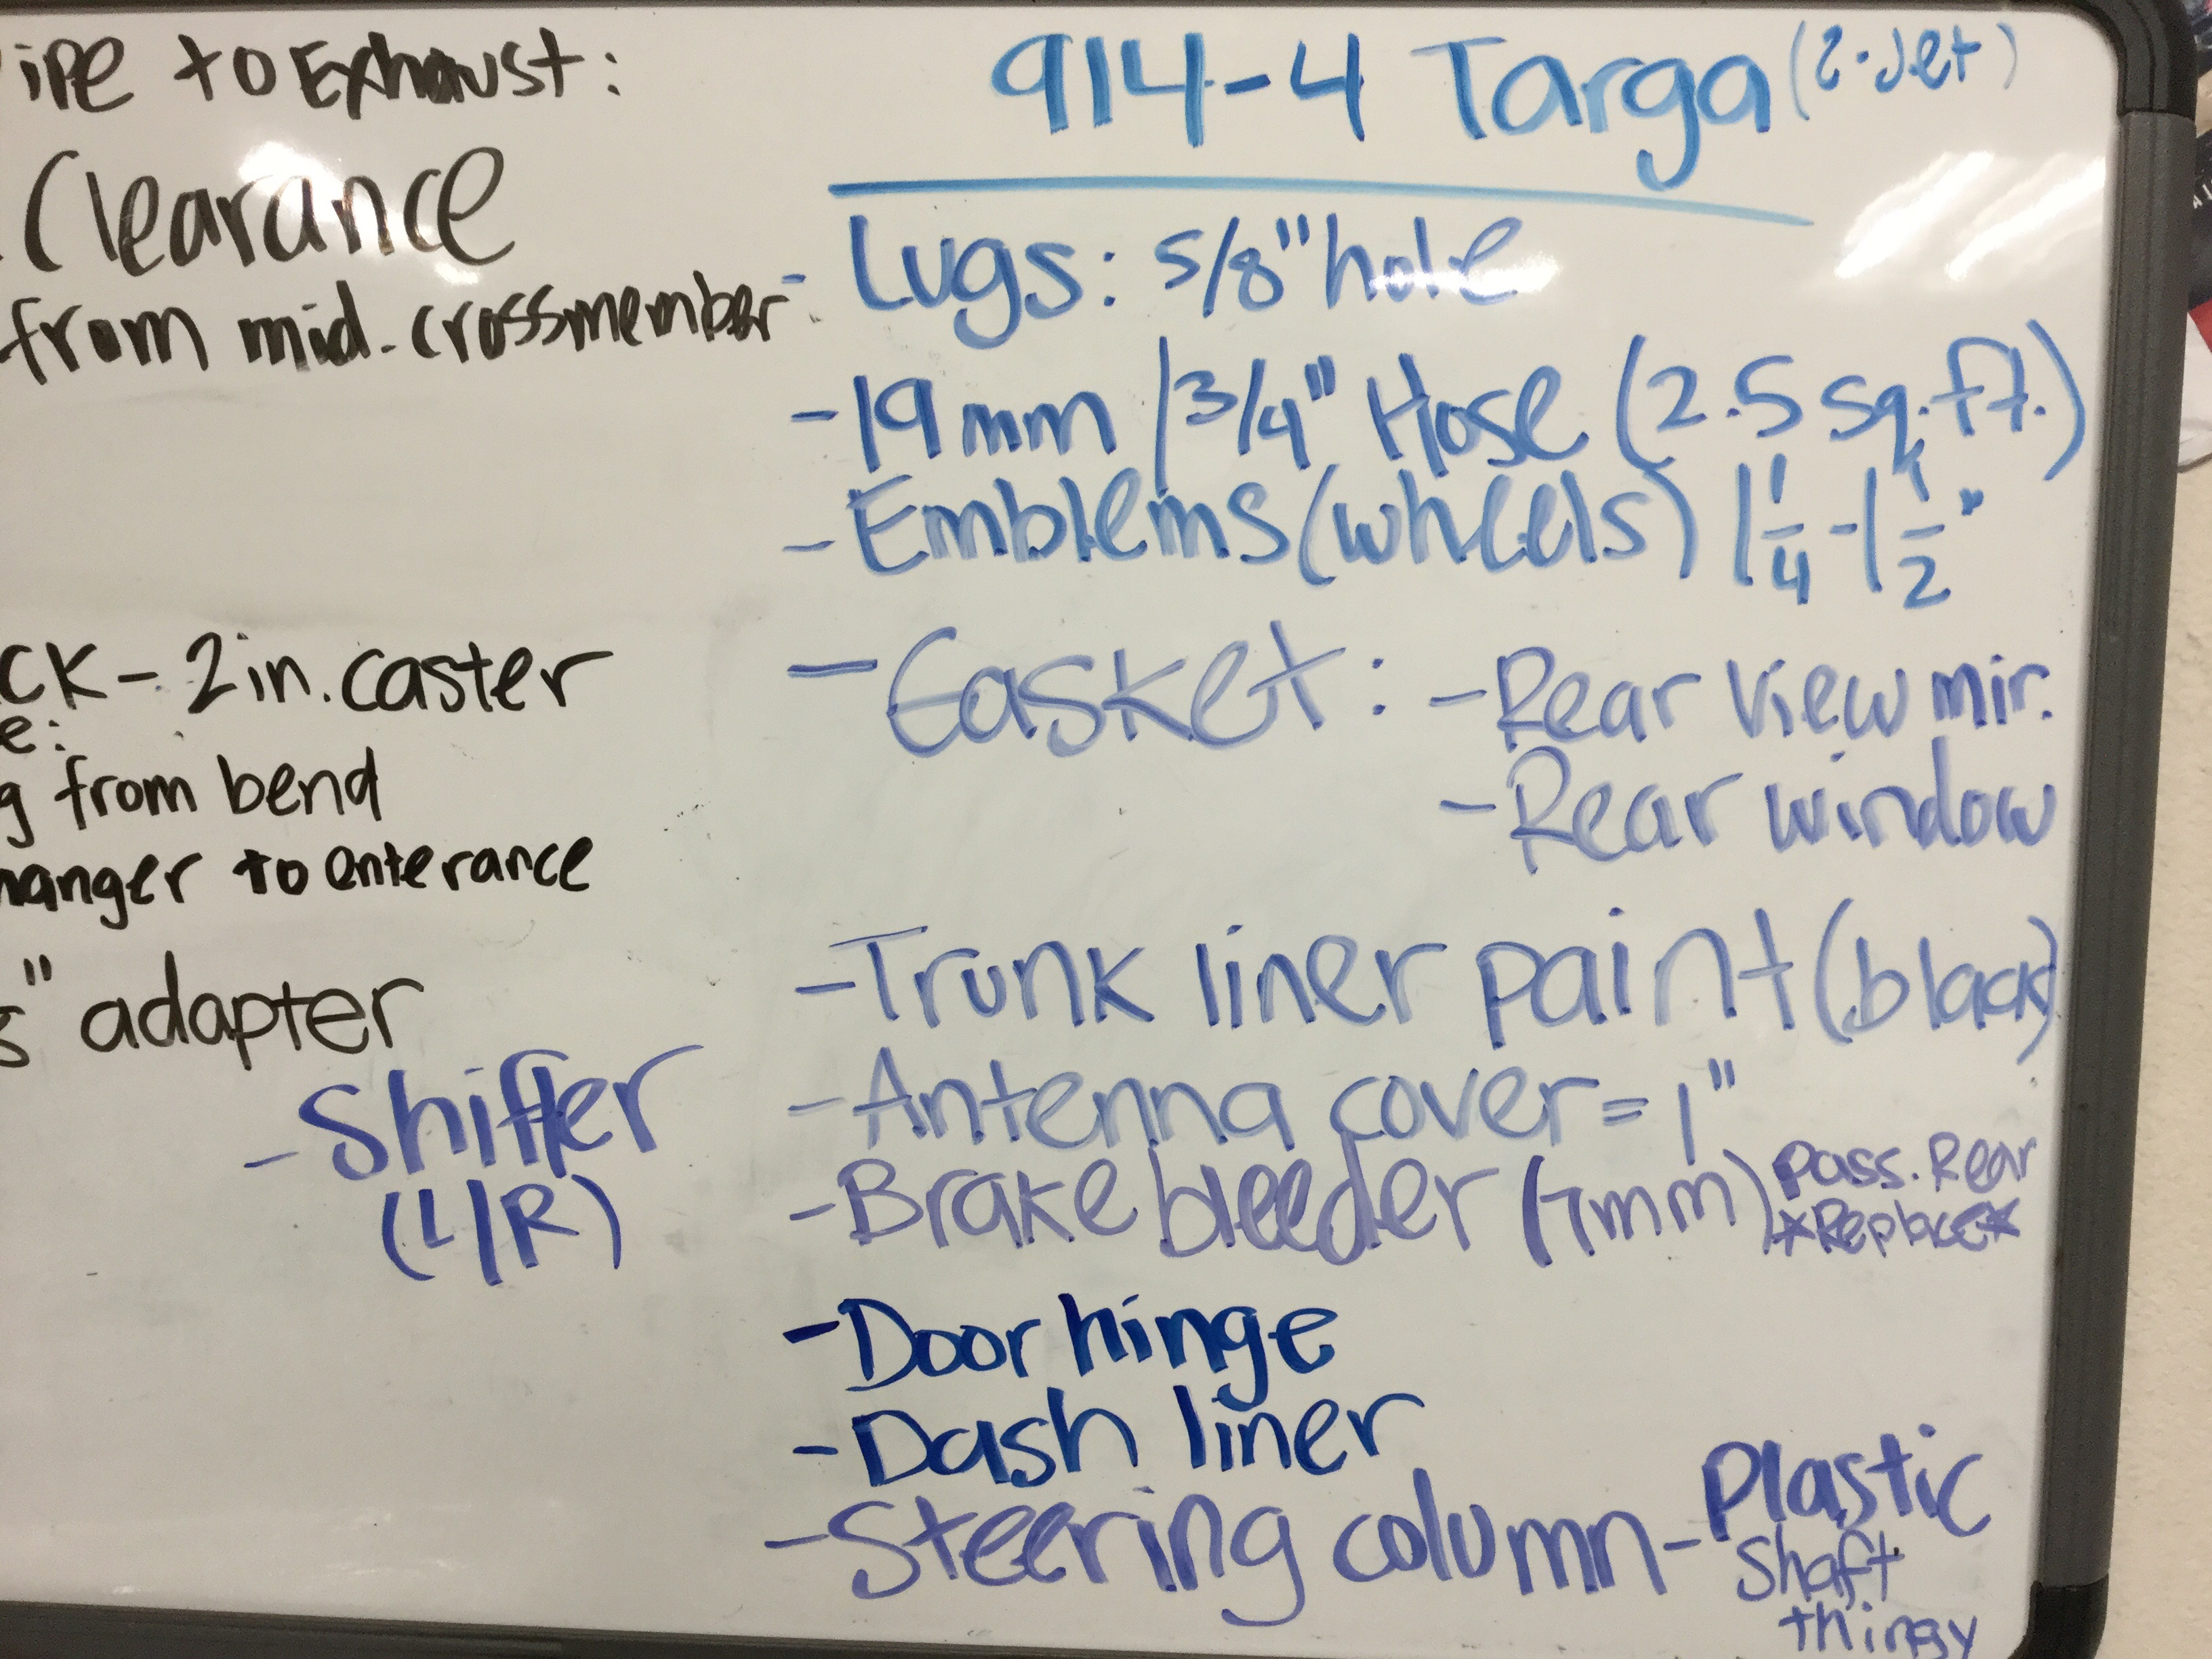 ipe to Exhaust:
Clearance
from mid. crossmember
ck - 2in. caster
e:
g from bend
hanger to enterance
" adapter
- Shifter
(L/R)
914-4 Targa (2-Jet)
- Lugs: 5/8" hole
- 19mm / 3/4" Hose (2.5 sq. ft.)
- Emblems (wheels) 1 1/4 - 1 1/2"
- Gasket: - Rear view mir.
- Rear window
- Trunk liner paint (black)
- Antenna cover = 1"
- Brake bleeder (7mm) pass. Rear
*Replace*
- Door hinge
- Dash liner
- Steering column - Plastic
shaft
thingy